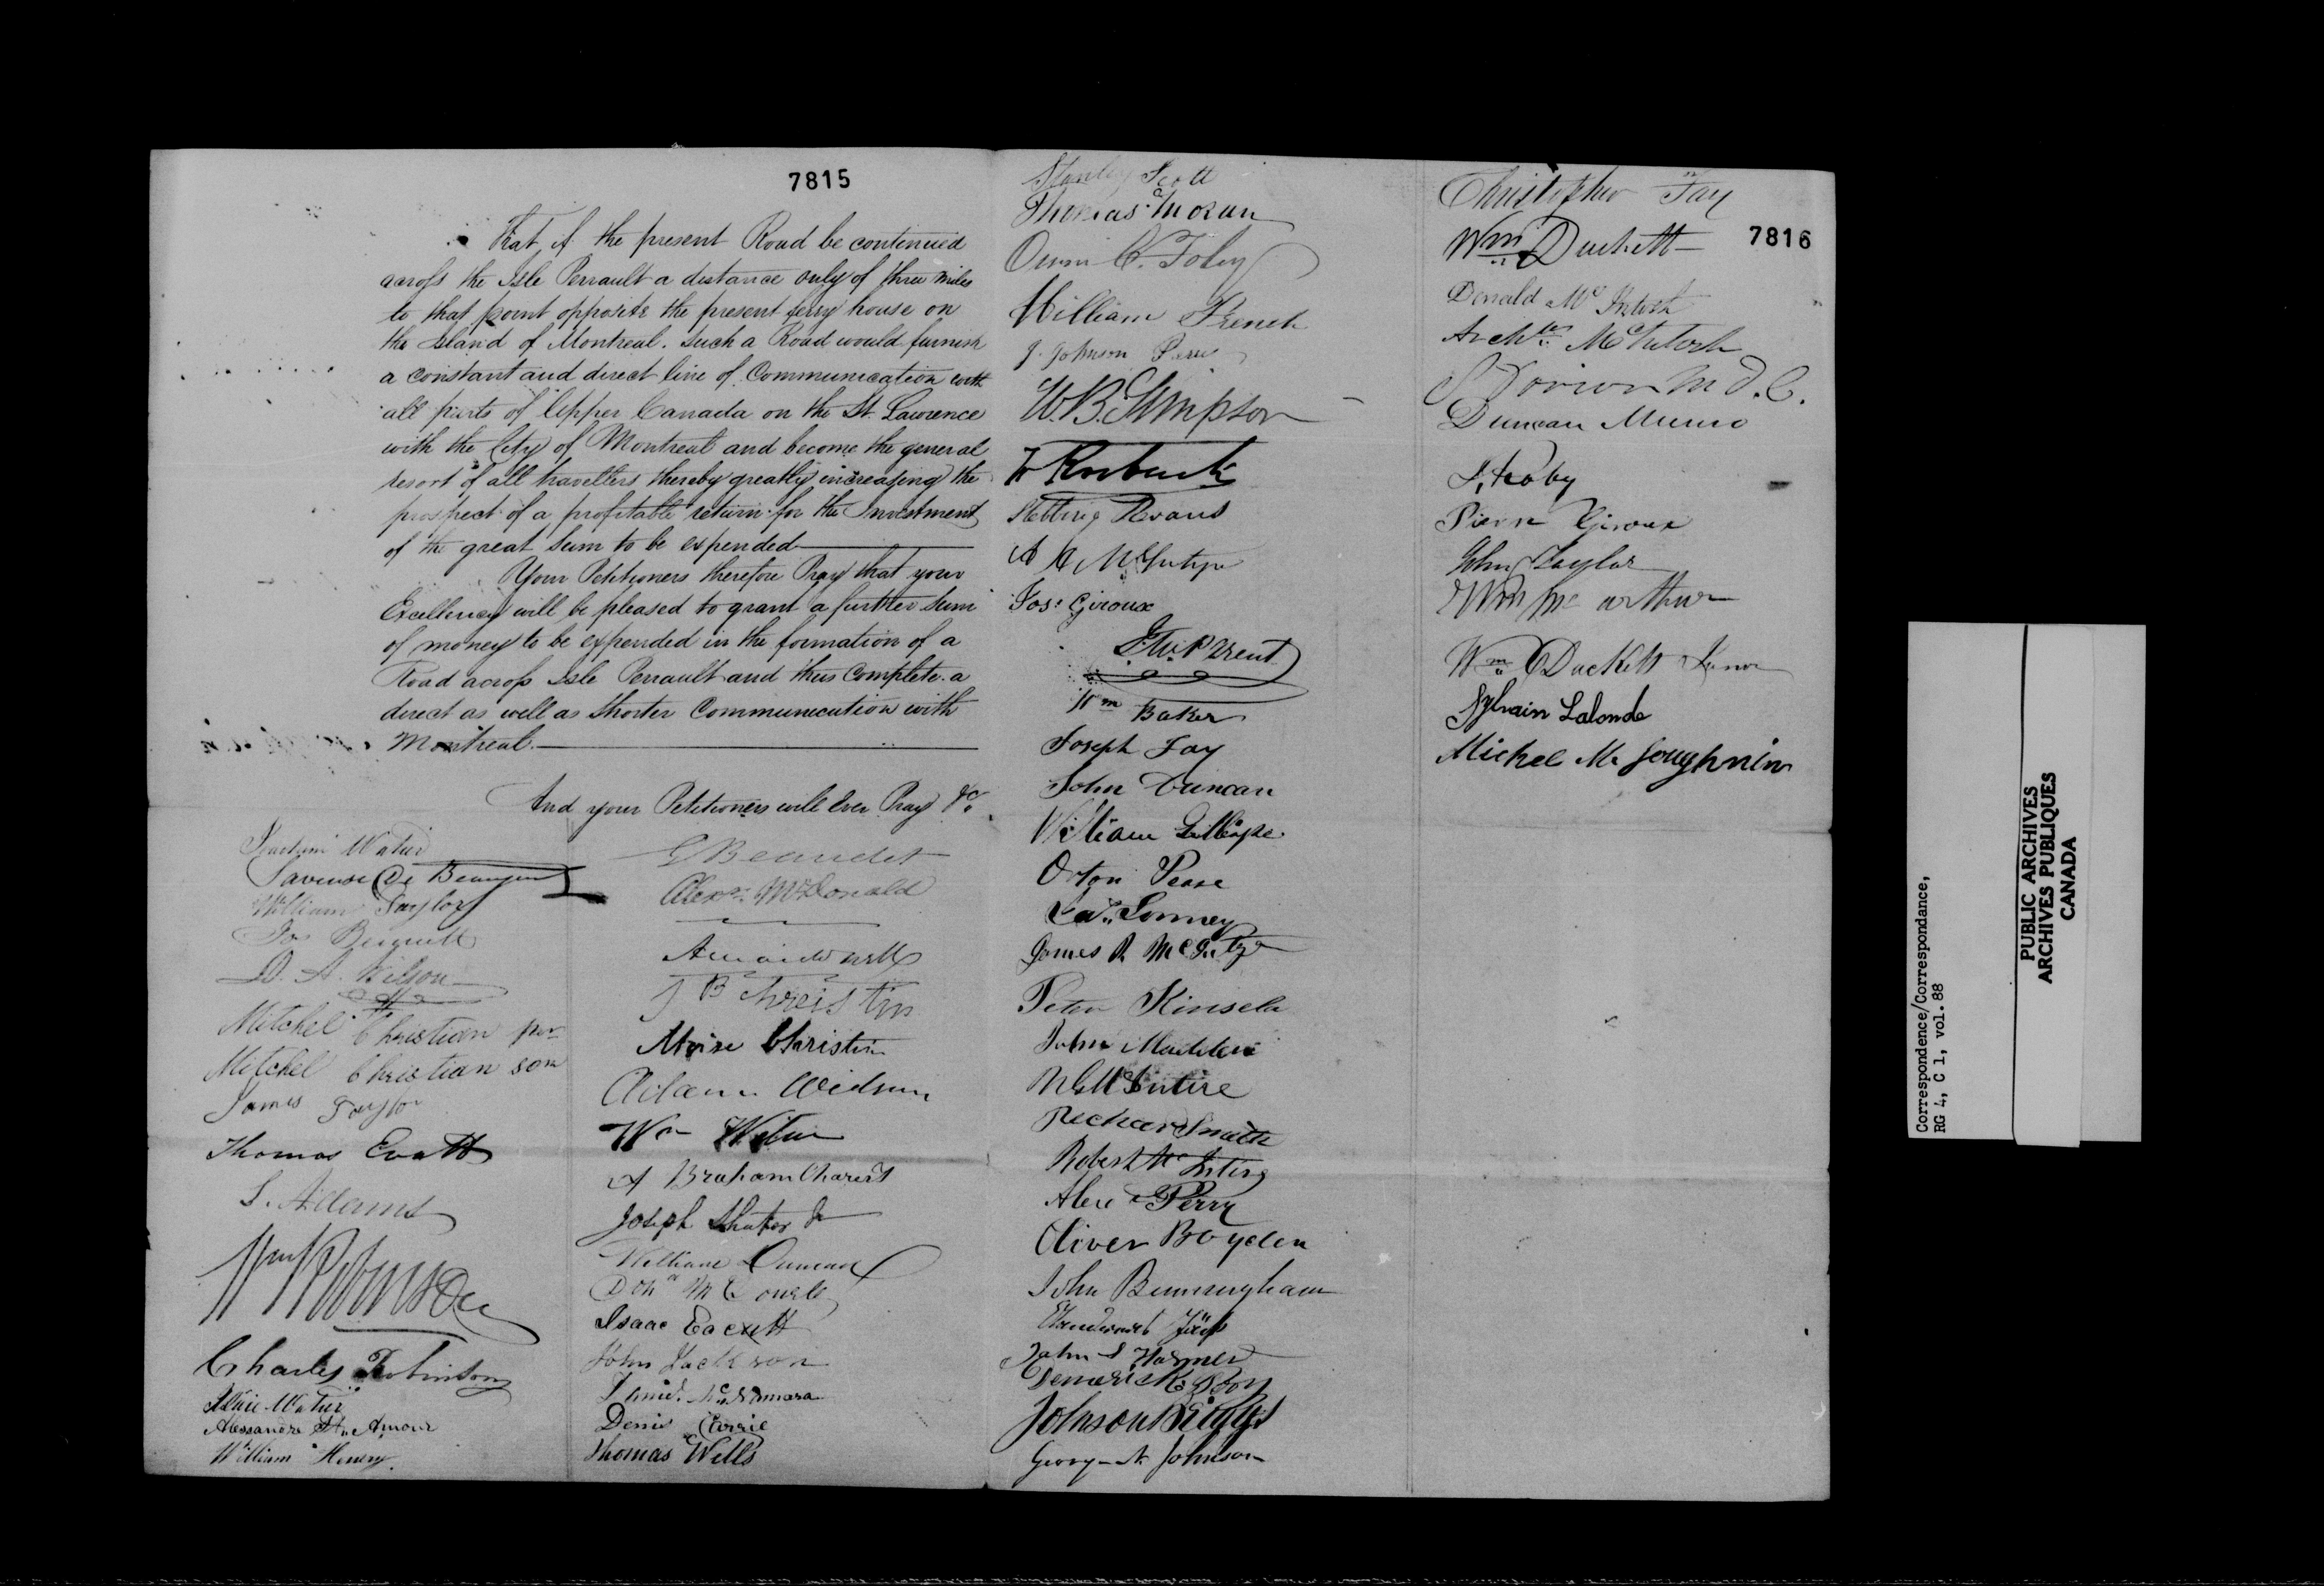 7815
That if the present Road be continued
across the Isle Perrault a distance only of three miles
to that point opposite the present ferry house on
the Island of Montreal. Such a Road would furnish
a constant and direct line of Communication with
all parts of Upper Canada on the St. Lawrence
with the City of Montreal and become the general
resort of all travellers thereby greatly increasing the
prospect of a profitable return for the Investment
of the great Sum to be expended
Your Petitioners therefore Pray that your
Excellency will be pleased to grant a further Sum
of money to be expended in the formation of a
Road across Isle Perrault and thus Complete a
direct as well as Shorter Communication with
Montreal.
And your Petitioners will Ever Pray &c.
Joachim Watier
Saveuse De Beaujeu
William Taylor
D. A. Wilson
Mitchel Christian
Mitchel Christian son
James Taylor
Thomas Evatt
S. Adams
Wm Robinson
Charles Robinson
Watier
Alessandre St. Amour
William Henry
G Beaudet
Alexr. McDonald
J B Christin
Moise Christin
Adam Wilson
Wm
A Braham Charest
Joseph Shuter Jr
William Duncan
Isaac
John Jackson
Daniel McNamara
Denis
Thomas Wells
Stanley Scott
Thomas Moran
William French
J. Johnson
W. B. Simpson
Roebuck
Evans
A McIntyre
Jos: Giroux
Wm Baker
Joseph Fay
John Duncan
William Gillespie
Orton Pease
James R McIntyre
Peter Kinsela
John Madden
McIntire
Richard Smith
Robert Mc
Alex Perry
Oliver Boyden
John Bunningham
John S Harmer
Johnson Briggs
George N Johnson
Christopher Fay
7816
Wm Duckett
Donald McIntosh
Archd. McIntosh
Duncan Munro
Roby
Pierre Giroux
John Taylor
Wm McArthur
Wm Duckett Junr
Sylvain Lalonde
Michel
Correspondence/Correspondance,
RG 4, C 1, vol. 88
PUBLIC ARCHIVES
ARCHIVES PUBLIQUES
CANADA